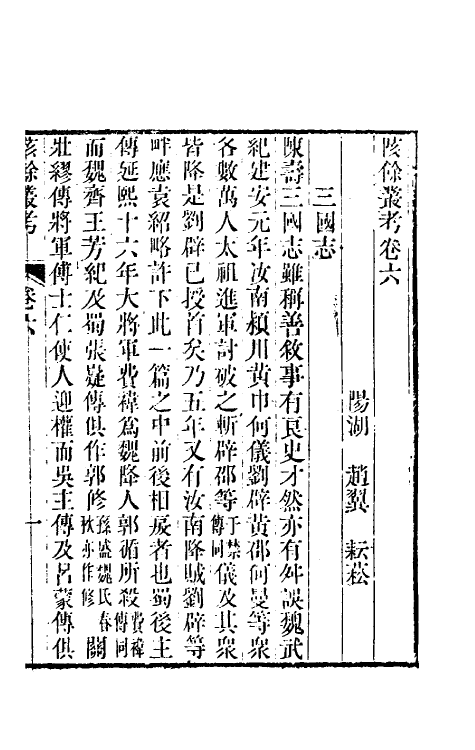 陔餘叢考卷六
陽湖 趙翼 耘菘
三國志
陳壽三國志雖稱善敘事有良史才然亦有舛誤魏武
紀建安元年汝南潁川黃巾何儀劉辟黃邵何曼等衆
各數萬人太祖進軍討破之斬辟邵等于禁傳同儀及其衆
皆降是劉辟已授首矣乃五年又有汝南降賊劉辟等
畔應袁紹略許下此一篇之中前後相戾者也蜀後主
傳延熙十六年大將軍費禕爲魏降人郭循所殺費禕傳同
而魏齊王芳紀及蜀張嶷傳俱作郭修孫盛魏氏春秋亦作修關
壯繆傳將軍傅士仁使人迎權而吳主傳及呂蒙傳俱
陔餘叢考 卷六 一